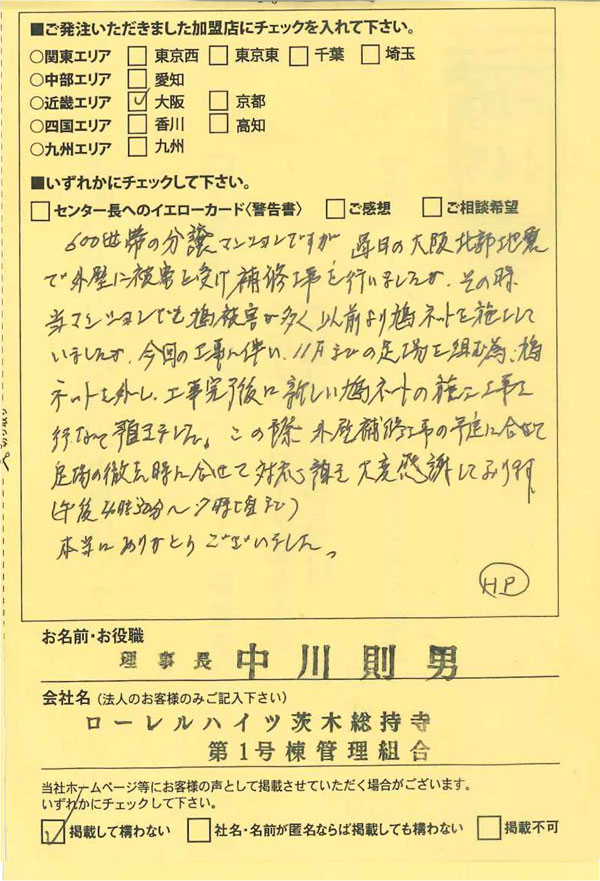 ■ご発注いただきました加盟店にチェックを入れて下さい。
○関東エリア □東京西 □東京東 □千葉 □埼玉
○中部エリア □愛知
○近畿エリア ☑大阪 □京都
○四国エリア □香川 □高知
○九州エリア □九州
■いずれかにチェックして下さい。
□センター長へのイエローカード〈警告書〉 □ご感想 □ご相談希望
600世帯の分譲マンションですが 過日の大阪北部地震
で外壁に被害を受け補修工事を行いましたが、その時
当マンションでも鳩被害が多く以前より鳩ネットを施して
いましたが、今回の工事に伴い、11月までの足場を組む為、鳩
ネットを外し、工事完了後に新しい鳩ネットの施工工事を
行なって頂きました。この際 外壁補修工事の予定に合せて
足場の撤去時に合せて対応頂き大変感謝しております
(午後 時30分〜7時頃まで)
本当にありがとうございました。
HP
お名前・お役職
理事長 中川則男
会社名(法人のお客様のみご記入下さい)
ローレルハイツ茨木総持寺
第1号棟管理組合
当社ホームページ等にお客様の声として掲載させていただく場合がございます。
いずれかにチェックして下さい。
☑掲載して構わない □社名・名前が匿名ならば掲載しても構わない □掲載不可